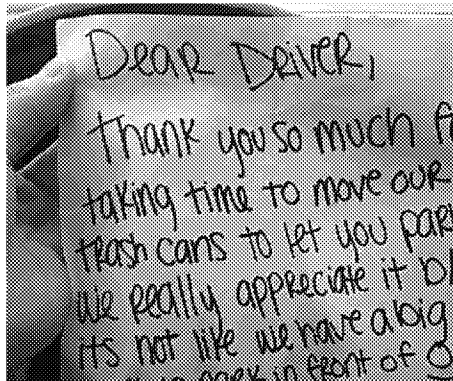 Dear Driver,
Thank you so much
taking time to move our
trash cans to let you
we really appreciate it
its not like we have a big
park in front of